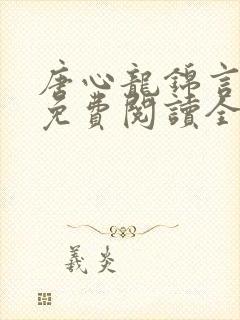 唐心龍錦言
免費閱讀全
羲炎